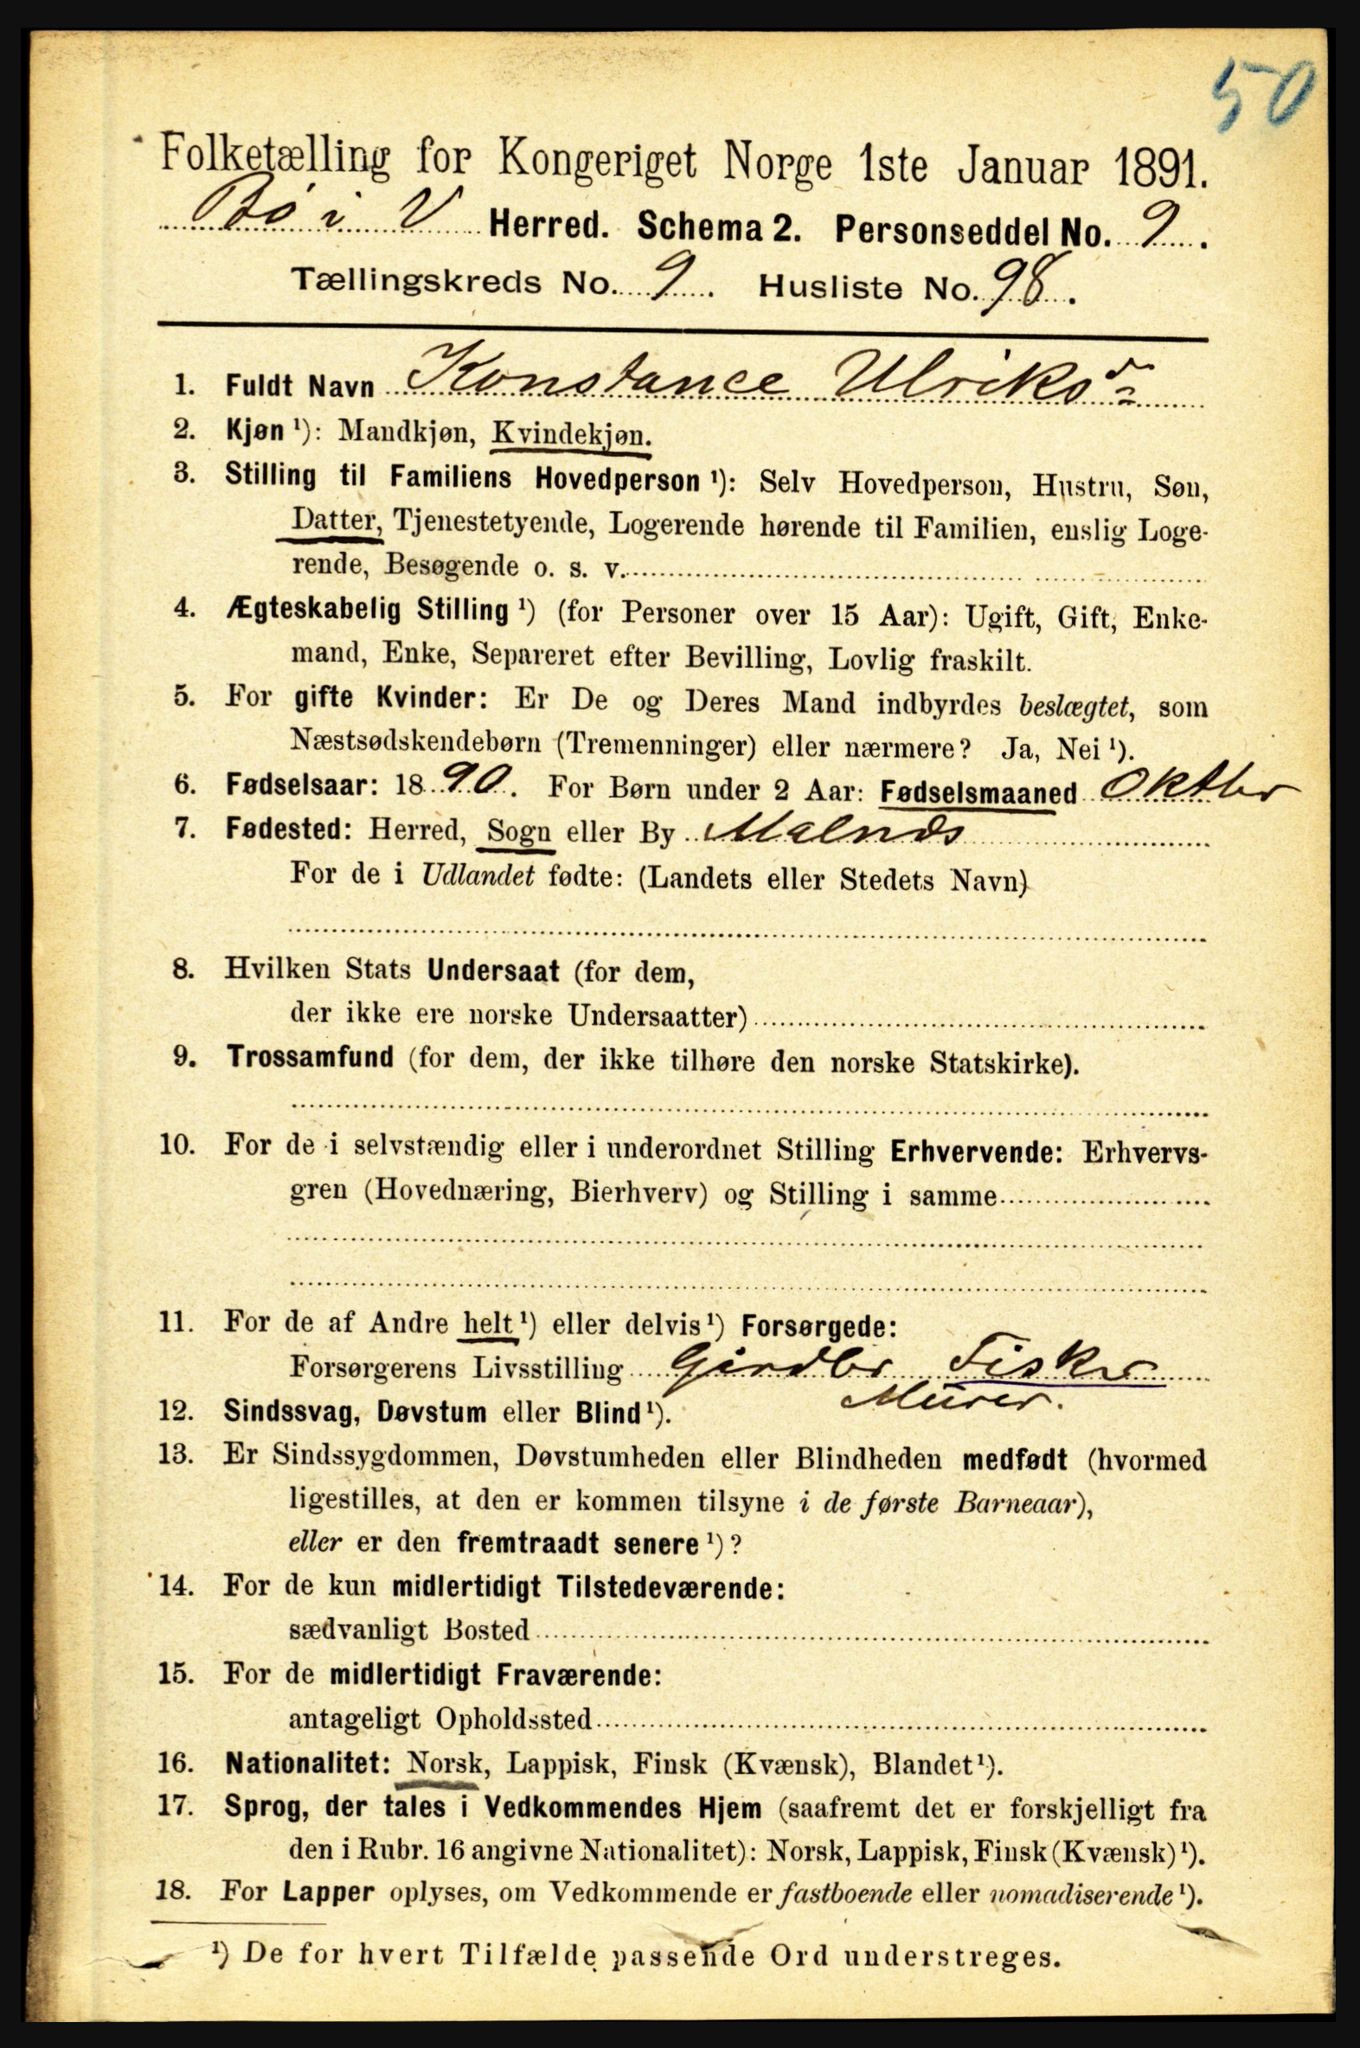 50
Folketælling for Kongeriget Norge 1ste Januar 1891.
Bø i V Herred. Schema 2. Personseddel No. 9.
Tællingskreds No. 9. Husliste No. 98.
1. Fuldt Navn Konstance Ulriksd
2. Kjøn ¹): Mandkjøn, Kvindekjøn.
3. Stilling til Familiens Hovedperson ¹): Selv Hovedperson, Hustru, Søn,
Datter, Tjenestetyende, Logerende hørende til Familien, enslig Loge-
rende, Besøgende o. s. v.
4. Ægteskabelig Stilling ¹) (for Personer over 15 Aar): Ugift, Gift, Enke-
mand, Enke, Separeret efter Bevilling, Lovlig fraskilt.
5. For gifte Kvinder: Er De og Deres Mand indbyrdes beslægtet, som
Næstsødskendebørn (Tremenninger) eller nærmere? Ja, Nei ¹).
6. Fødselsaar: 1890. For Børn under 2 Aar: Fødselsmaaned Oktbr
7. Fødested: Herred, Sogn eller By Malnes
For de i Udlandet fødte: (Landets eller Stedets Navn)
8. Hvilken Stats Undersaat (for dem,
der ikke ere norske Undersaatter)
9. Trossamfund (for dem, der ikke tilhøre den norske Statskirke).
10. For de i selvstændig eller i underordnet Stilling Erhvervende: Erhvervs-
gren (Hovednæring, Bierhverv) og Stilling i samme
11. For de af Andre helt ¹) eller delvis ¹) Forsørgede:
Forsørgerens Livsstilling Gårdbr Fisker
Murer.
12. Sindssvag, Døvstum eller Blind ¹).
13. Er Sindssygdommen, Døvstumheden eller Blindheden medfødt (hvormed
ligestilles, at den er kommen tilsyne i de første Barneaar),
eller er den fremtraadt senere ¹)?
14. For de kun midlertidigt Tilstedeværende:
sædvanligt Bosted
15. For de midlertidigt Fraværende:
antageligt Opholdssted
16. Nationalitet: Norsk, Lappisk, Finsk (Kvænsk), Blandet ¹).
17. Sprog, der tales i Vedkommendes Hjem (saafremt det er forskjelligt fra
den i Rubr. 16 angivne Nationalitet): Norsk, Lappisk, Finsk (Kvænsk) ¹).
18. For Lapper oplyses, om Vedkommende er fastboende eller nomadiserende ¹).
¹) De for hvert Tilfælde passende Ord understreges.